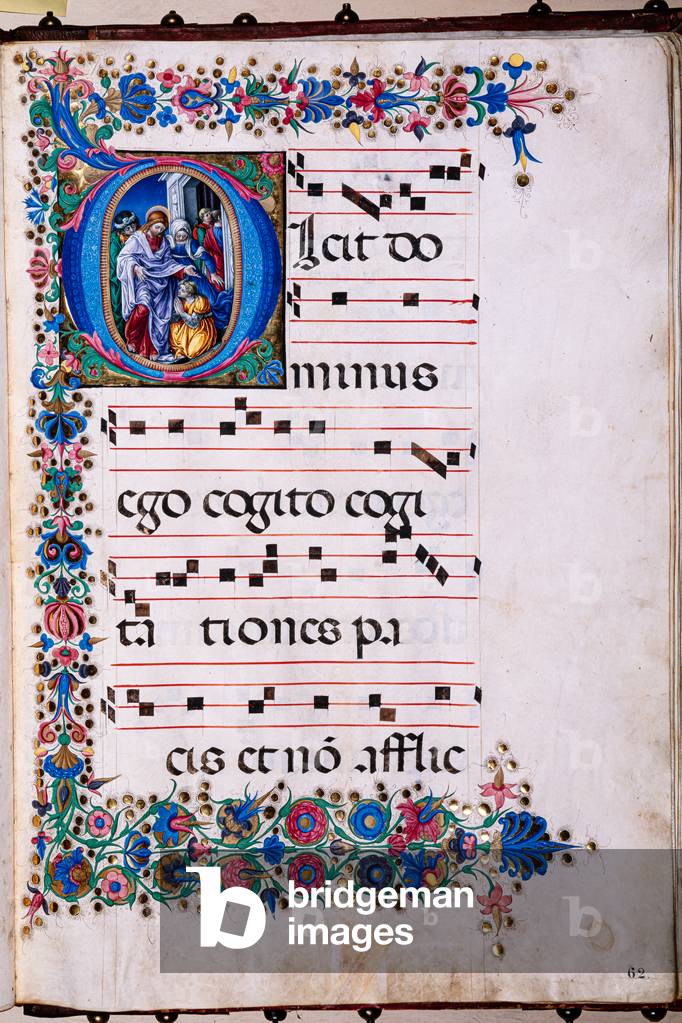 DIcit do
minus
ego cogito cogi
ta tiones pa
cis et nō afflic
b bridgeman
images
62.